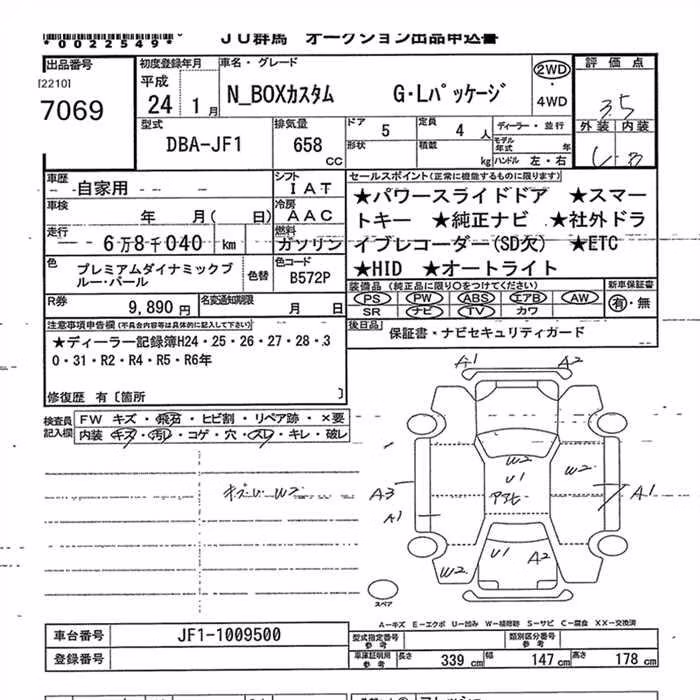 *0022549*
JU群馬 オークション出品申込書
出品番号 初度登録年月 車名・グレード 評価点
[2210] 平成
7069 24 ・ 1月 N_BOXカスタム G・Lパッケージ 2WD ・ 4WD 3.5
型式 排気量 ドア 5 定員 4 人 ディーラー・並行 外装 内装
DBA-JF1 658 CC 形状 積載 kg モデル年式 年 ハンドル 左・右
車歴 自家用 シフト IAT セールスポイント(正常に機能するものに限ります)
車検 年 月( 日) 冷房 AAC ★パワースライドドア ★スマー
走行 6万8千040 km 燃料 ガソリン トキー ★純正ナビ ★社外ドラ
イブレコーダー(SD欠) ★ETC
色 プレミアムダイナミックブルー・パール 色替 色コード B572P ★HID ★オートライト
装備品(純正品に限り○をつけてください) 新車保証書
PS PW ABS エアB AW 有・無
SR ナビ TV カワ
R券 9,890円 名変通知期限 月 日
後日品 保証書・ナビセキュリティガード
注意事項申告欄(不具合内容等は具体的に記入して下さい)
★ディーラー記録簿H24・25・26・27・28・3
0・31・R2・R4・R5・R6年
修復歴 有〔箇所 〕
検査員記入欄 FW キズ・飛石・ヒビ割・リペア跡・×要
内装 キズ・汚レ・コゲ・穴・スレ・キレ・破レ
A1 A2
W2
U1 W2
A3 A1
A1
U1 A2
W2
スペア
A-キズ E-エクボ U-凹み W-補修跡 S-サビ C-腐食 XX-交換済
車台番号 JF1-1009500 型式指定番号 参考 類別区分番号 参考
登録番号 車庫証明用 参考 長さ 339cm 幅 147cm 高さ 178cm